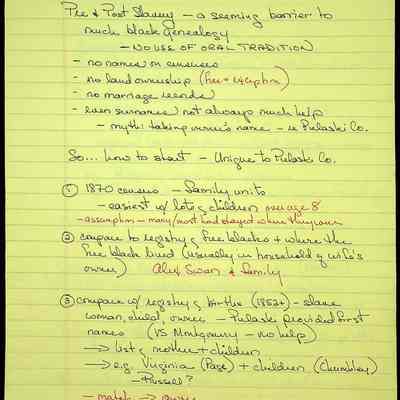 Pre & Post Slavery - a seeming barrier to
much black genealogy
- NO USE OF ORAL TRADITION
- no names on censuses
- no land ownership (few exceptions)
- no marriage records
- even surnames not always much help
- myth: taking owner's name - in Pulaski Co.
So... how to start - Unique to Pulaski Co.
① 1870 census - family units
- easiest w/ lots of children over age 8
- assumption - many/most had stayed where they were
② compare to registry of free blacks + where the
free black lived (usually in household of wife's
owner) Alex Swan & family
③ compare w/ registry of births (1853+) - slave
woman, child, owner - Pulaski provided first
names (VS Montgomery - no help)
→ list of mother + children
→ e.g. Virginia (Page) + children (Chumbley)
- Russell?
- match → owner